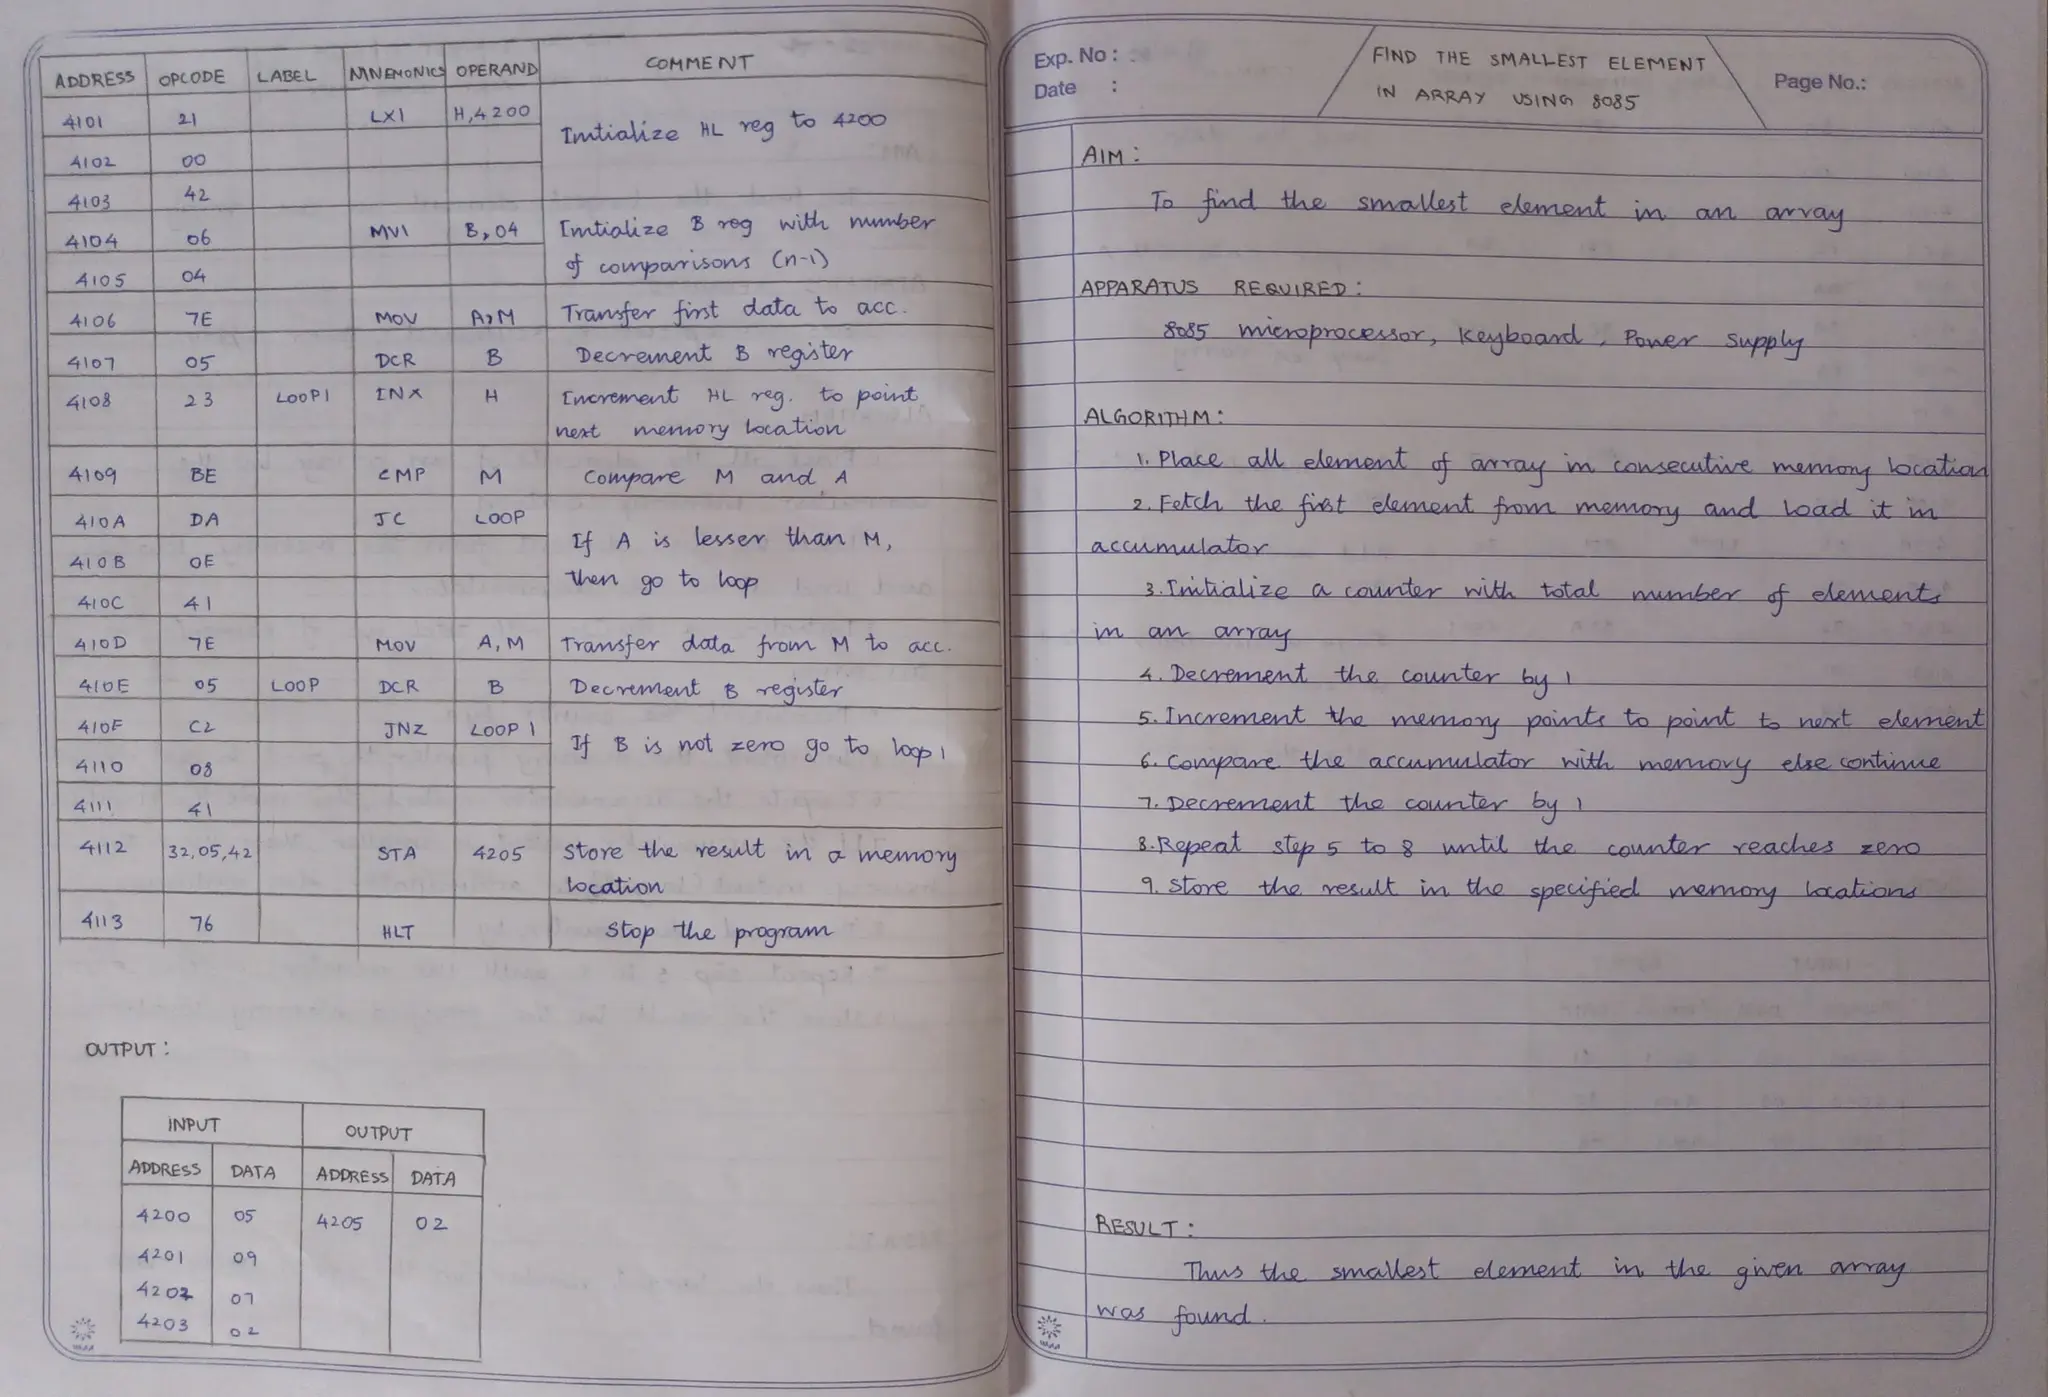 ADDRESS OPCODE LABEL MNEMONICS OPERAND COMMENT
4101 21 LXI H,4200 Initialize HL reg to 4200
4102 00
4103 42
4104 06 MVI B,04 Initialize B reg with number
of comparisons (n-1)
4105 04
4106 7E MOV A,M Transfer first data to acc.
4107 05 DCR B Decrement B register
4108 23 LOOP1 INX H Increment HL reg. to point
next memory location
4109 BE CMP M Compare M and A
410A DA JC LOOP If A is lesser than M,
410B 0E then go to loop
410C 41
410D 7E MOV A,M Transfer data from M to acc.
410E 05 LOOP DCR B Decrement B register
410F C2 JNZ LOOP 1 If B is not zero go to loop 1
4110 08
4111 41
4112 32,05,42 STA 4205 Store the result in a memory
location
4113 76 HLT Stop the program
OUTPUT:
INPUT OUTPUT
ADDRESS DATA ADDRESS DATA
4200 05 4205 02
4201 09
4202 07
4203 02
Exp. No :
Date :
FIND THE SMALLEST ELEMENT
IN ARRAY USING 8085
Page No.:
AIM:
To find the smallest element in an array
APPARATUS REQUIRED:
8085 microprocessor, Keyboard, Power Supply
ALGORITHM:
1. Place all element of array in consecutive memory location
2. Fetch the first element from memory and load it in
accumulator
3. Initialize a counter with total number of elements
in an array
4. Decrement the counter by 1
5. Increment the memory points to point to next element
6. Compare the accumulator with memory else continue
7. Decrement the counter by 1
8. Repeat step 5 to 8 until the counter reaches zero
9. Store the result in the specified memory locations
RESULT:
Thus the smallest element in the given array
was found.